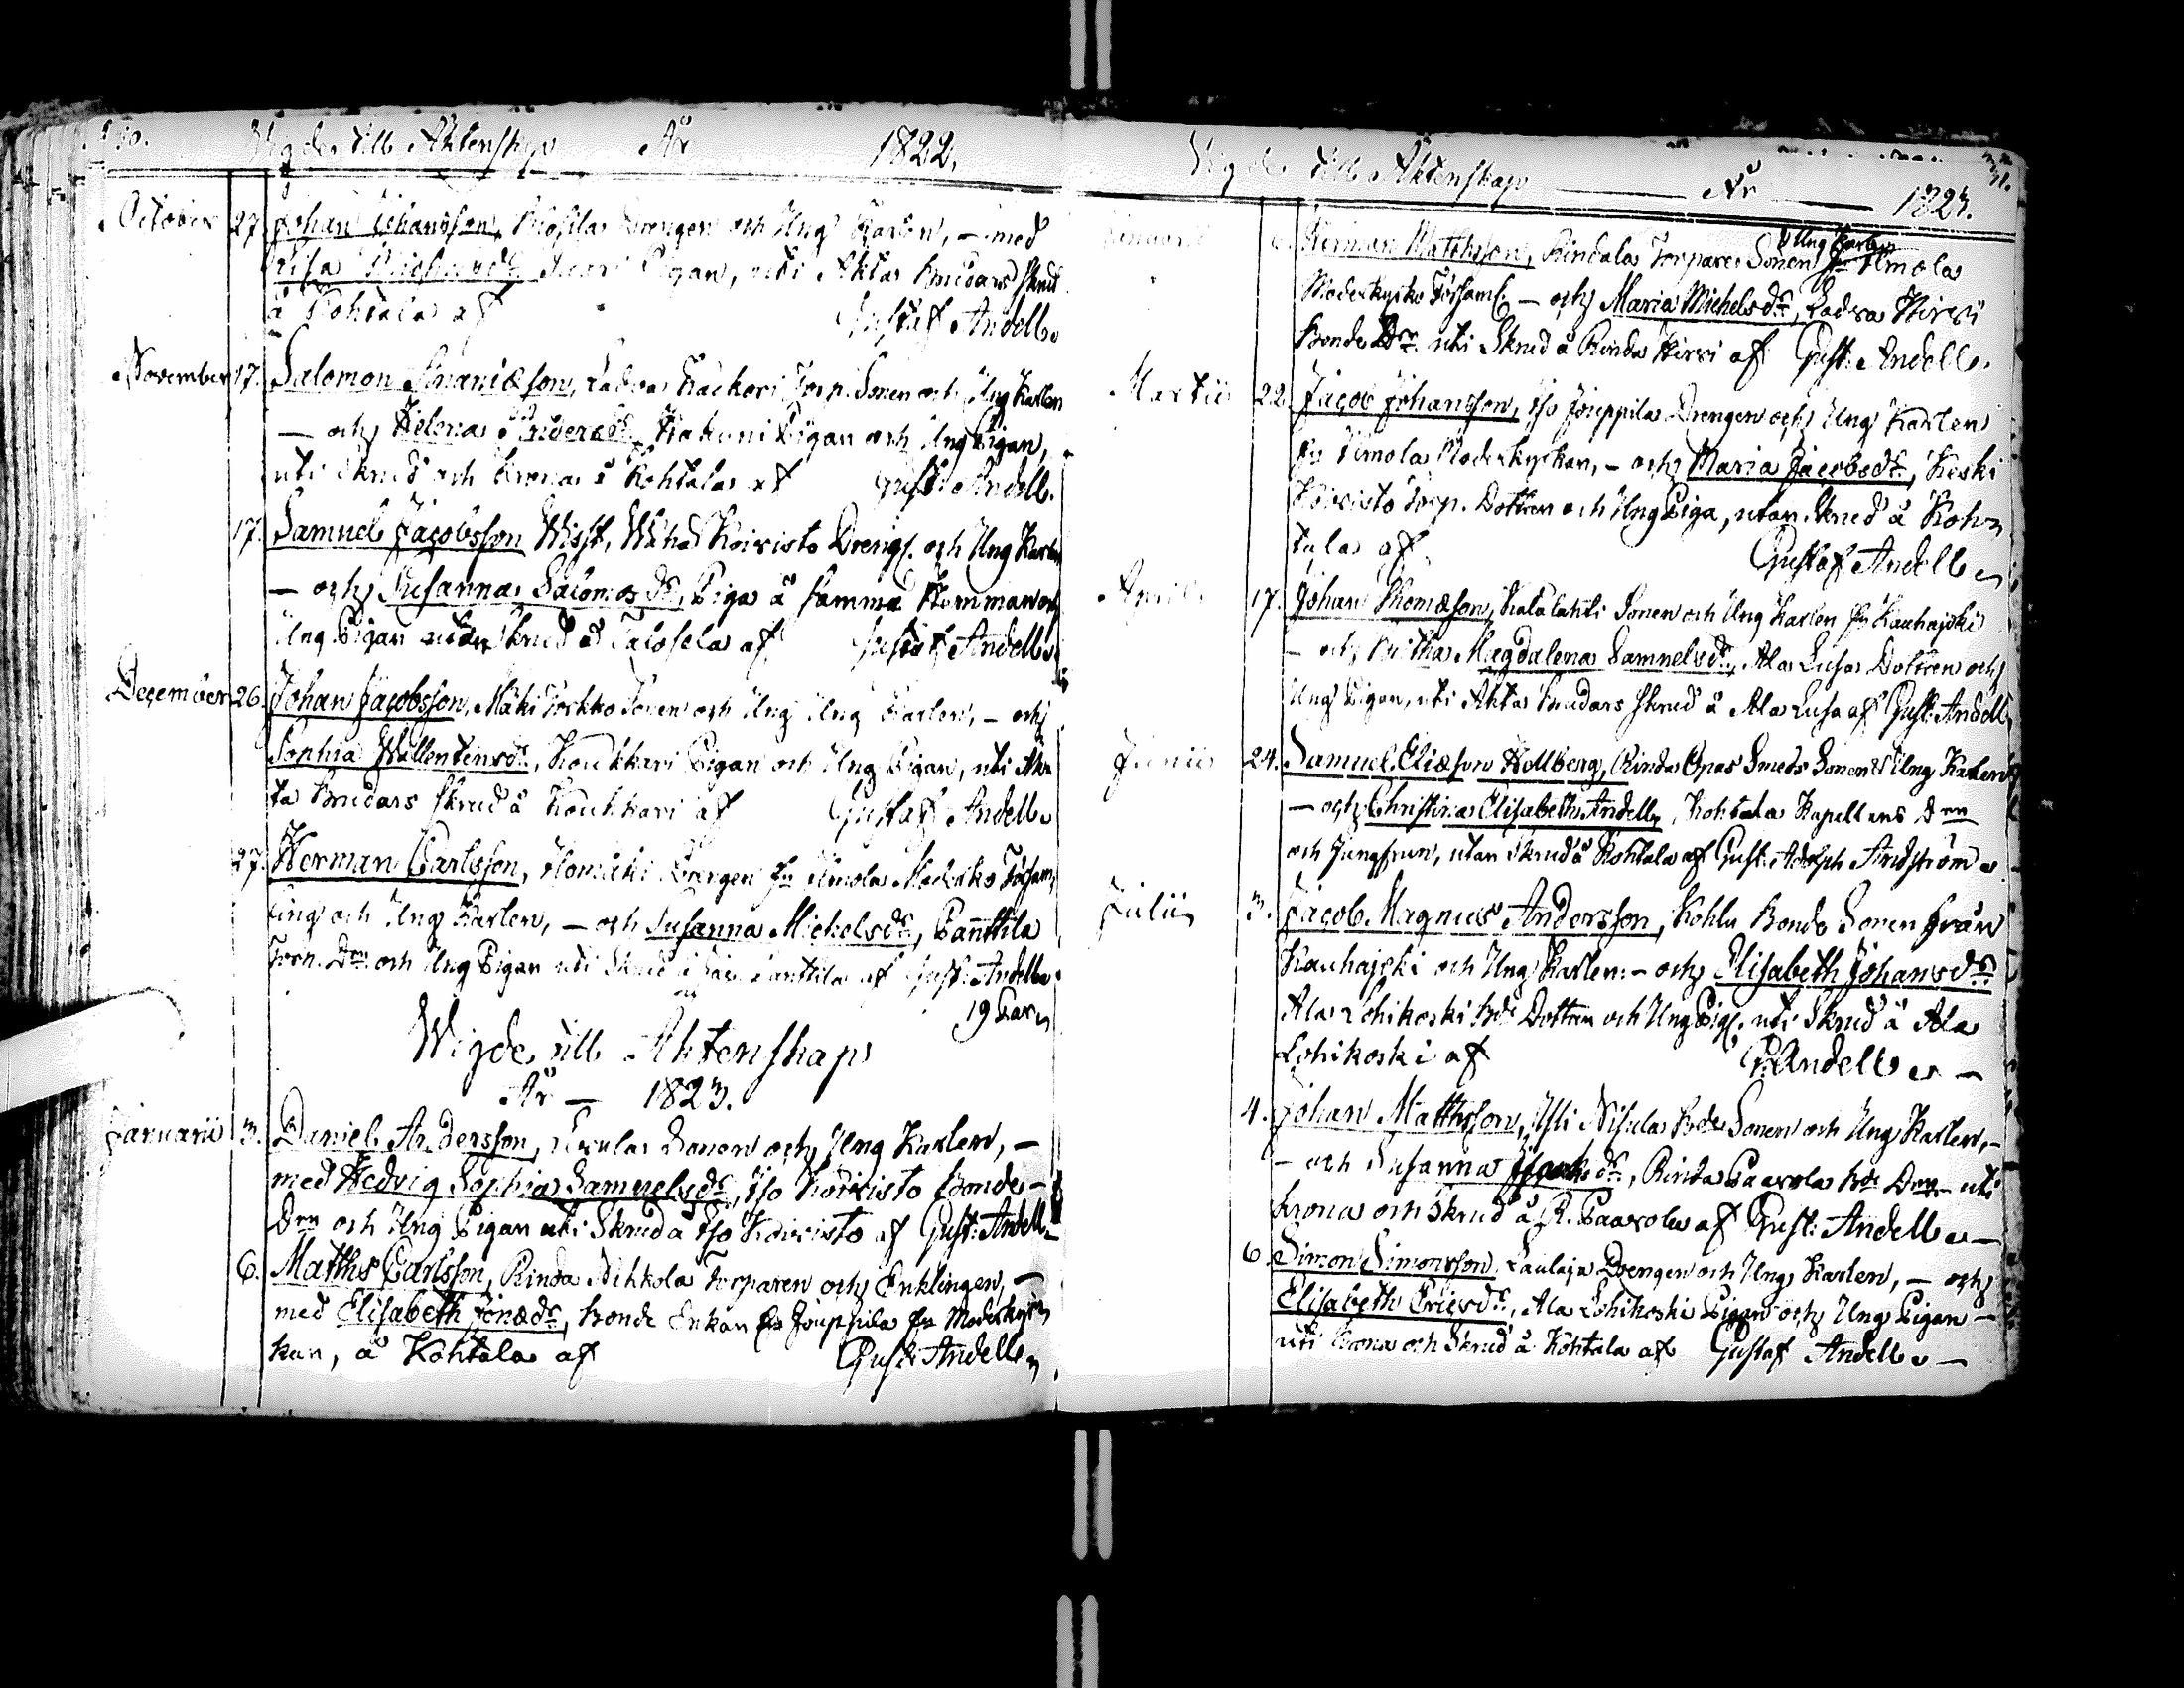 Wigde till Äktenskap År 1822.
October 27. Johan Johansson, Drengen och Ung Karlen, – med
Lisa Pigan, uti Äkta Brudars skrud
å Kohtala af Gustaf Andell
November 17. Salomon Ananiæson, Torp. Sonen och Ung Karlen
– och Helena Andersdr. Pigan och Ung Pigan,
uti Skrud och Krona å Kohtala af Gust: Andell.
17. Samuel Jacobsson Wisst, Wähä Koivisto Drengs. och Ung Karlen
– och Susanna Salomosdr, Piga å samma Hemman och
Ung Pigan utan skrud å af Gustaf Andell
December 26. Johan Jacobsson, Mäki Torkko Sonen och Ung Ung Karlen, – och
Sophia Wallentinsdr., Koukkari Pigan och Ung Pigan, uti Äk
ta Brudars skrud å Koukkari af Gustaf Andell
27. Herman Carlsson, Drengen fn Ilmola Moderko Försam,
ling och Ung Karlen, – och Susanna Michelsdr, Panttila
Torp. Dn och Ung Pigan uti Skrud å Panttila af Gust: Andell
19 Par
Wigde till Äktenskap
År – 1823.
Januarii 3. Daniel Andersson, Sonen och Ung Karlen, –
med Hedvig Sophia Samuelsdr, Iso Koivisto Bonde –
Drn och Ung Pigan uti Skrud å Iso Koivisto af Gust: Andell
6. Matths Carlsson, Rinda Torparen och Enklingen, –
med Elisabeth Jonædr, Bonde Enkan fn Jouppila fn Moderkyr
kan, å Kohtala af Gust: Andell
Wigde till Äktenskap År 1823.
Januarii 6. Herman Matthsson, Rindala Torpare Sonen & Ung Karlen fn Ilmola
Moderkyrko Församl. – och Maria Michelsdr, Ladva Hirvi
Bonde Drn. uti Skrud å Rinda Hirvi af Gust: Andell.
Martii 22. Jacob Johansson, Iso Jouppila Drengen och Ung Karlen
fn Ilmola Moderkyrkan, – och Maria Jacobsdr, Keski
Koivisto Torp. Dottren och Ung Piga, utan Skrud å Koh
tala af Gustaf Andell
April 17. Johan Thomæson, Katalahti Sonen och Ung Karlen fn Kauhajoki
– och Britha Magdalena Samuelsdr, Ala Lusa Dottren och
Ung Pigan, uti Äkta Brudars skrud å Ala Lusa af Gust: Andell
Junii 24. Samuel Eliæson Hollberg, Rinda Opas Smeds Sonen & Ung Karlen
– och Christina Elisabeth Andell, Kohtala Kapellans Drn
och Jungfrun, utan Skrud å Kohtala af Gust: Adolph Andström
Julii 3. Jacob Magnus Andersson, Kohlu Bonde Sonen från
Kauhajoki och Ung Karlen – och Elisabeth Johansdr.
Ala Lohikoski Bde Dottren och Ung Pig. uti Skrud å Ala
Lohikoski af G: Andell –
4. Johan Matthsson, Yli Nisula Bde Sonen och Ung Karlen, –
– och Susanna Isacksdr, Rinda Paavola Bde Drn – uti
Krona och Skrud å R. Paavola af Gust: Andell –
6. Simon Simonsson Laulaja Drengen och Ung Karlen, – och
Elisabeth Ericsdr, Ala Lohikoski Pigan och Ung Pigan –
uti Krona och Skrud å Kohtala af Gustaf Andell –